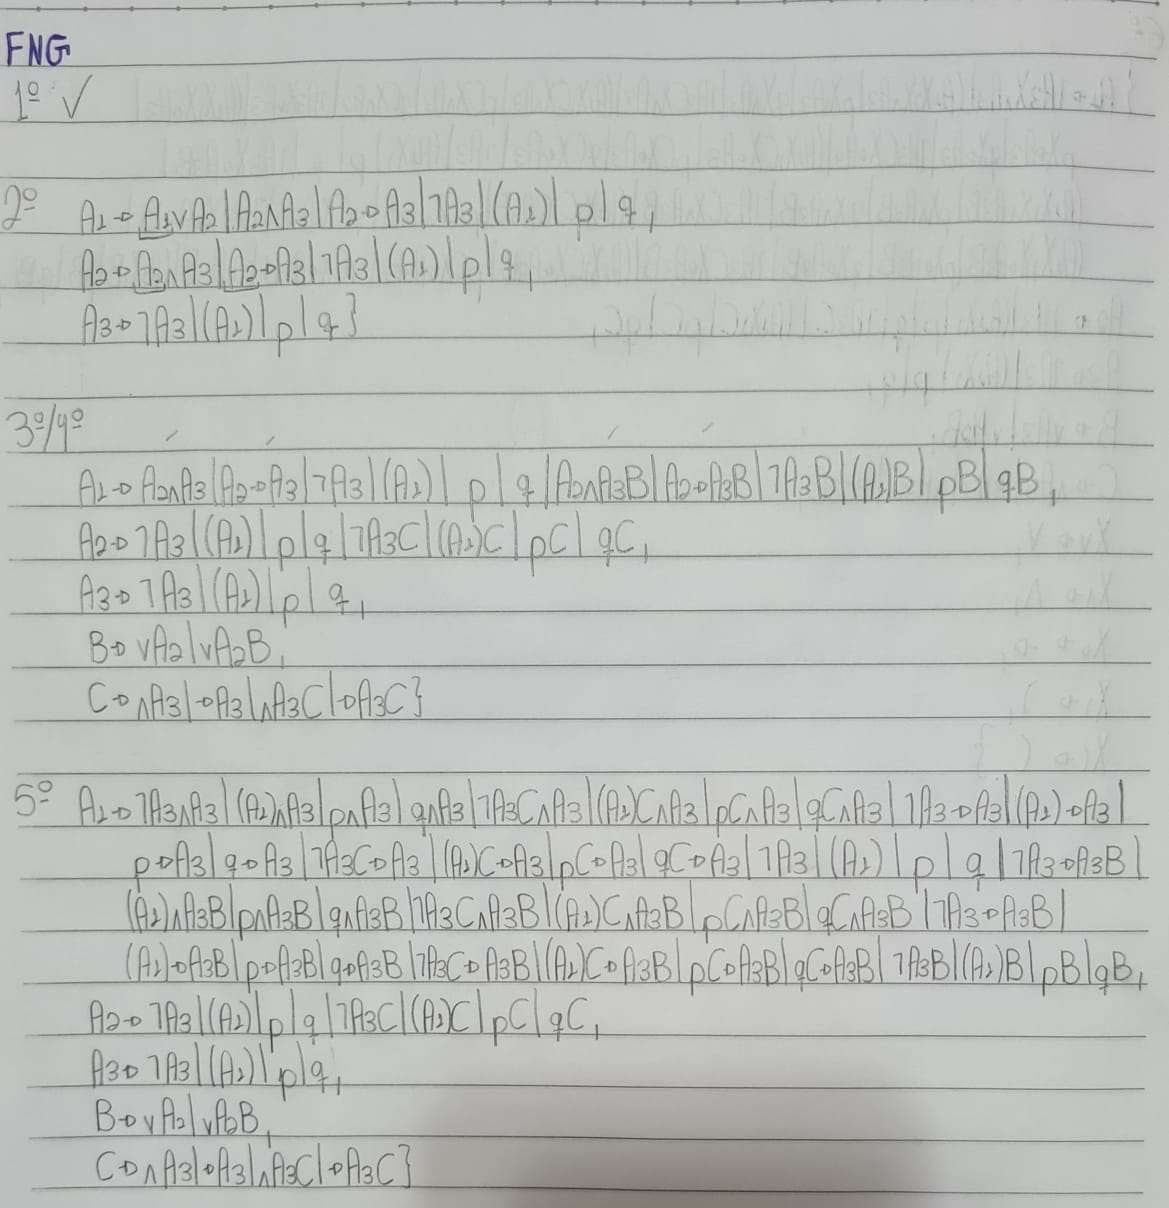 FNG
1º ✓
2º A₁→A₁∨A₂|A₂∧A₃|A₂→A₃|¬A₃|(A₁)|p|q,
A₂→A₂∧A₃|A₂→A₃|¬A₃|(A₁)|p|q,
A₃→¬A₃|(A₁)|p|q}
3º/4º
A₁→A₂∧A₃|A₂→A₃|¬A₃|(A₁)|p|q|A₂∧A₃B|A₂→A₃B|¬A₃B|(A₁)B|pB|qB,
A₂→¬A₃|(A₁)|p|q|¬A₃C|(A₁)C|pC|qC,
A₃→¬A₃|(A₁)|p|q,
B→∨A₂|∨A₂B,
C→∧A₃|→A₃|∧A₃C|→A₃C}
5º A₁→¬A₃∧A₃|(A₁)∧A₃|p∧A₃|q∧A₃|¬A₃C∧A₃|(A₁)C∧A₃|pC∧A₃|qC∧A₃|¬A₃→A₃|(A₁)→A₃|
p→A₃|q→A₃|¬A₃C→A₃|(A₁)C→A₃|pC→A₃|qC→A₃|¬A₃|(A₁)|p|q|¬A₃→A₃B|
(A₁)∧A₃B|p∧A₃B|q∧A₃B|¬A₃C∧A₃B|(A₁)C∧A₃B|pC∧A₃B|qC∧A₃B|¬A₃→A₃B|
(A₁)→A₃B|p→A₃B|q→A₃B|¬A₃C→A₃B|(A₁)C→A₃B|pC→A₃B|qC→A₃B|¬A₃B|(A₁)B|pB|qB,
A₂→¬A₃|(A₁)|p|q|¬A₃C|(A₁)C|pC|qC,
A₃→¬A₃|(A₁)|p|q,
B→∨A₂|∨A₂B,
C→∧A₃|→A₃|∧A₃C|→A₃C}